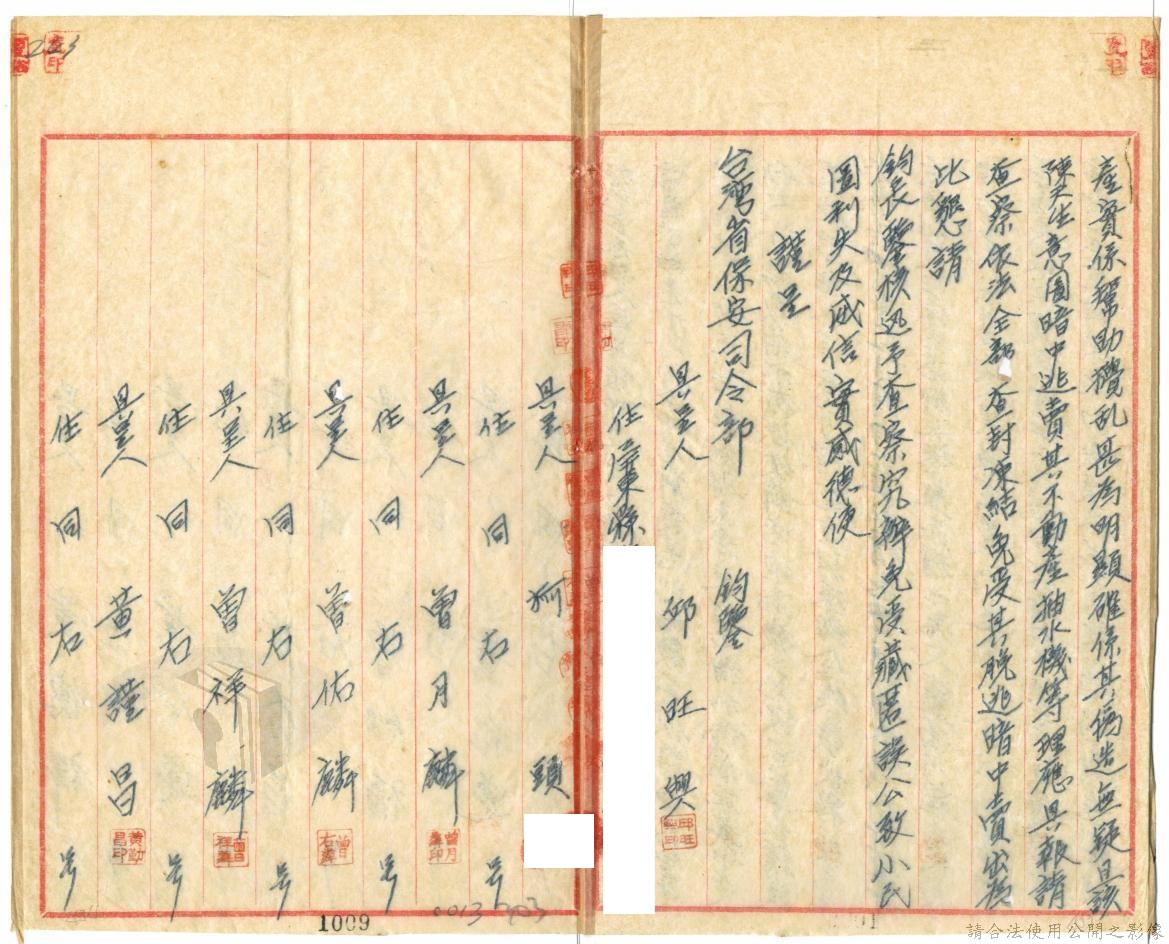 產實係幫助攪乱甚為明顯確係其偽造無疑且該
陳天生意圖暗中逃賣其不動產抽水機等理應具報請
查察依法全部查封凍結免受其脫逃暗中賣出為
比懇請
鈞長鑒核迅予查察究辦免受藏匿誤公致小民
圖利失及威信實感德使
謹呈
台灣省保安司令部 鈞鑒
具呈人 邱旺興
邱旺興印
住 縣
具呈人 頭
住 同 右 号
具呈人 曾月麟
曾月麟印
住 同 右 号
具呈人 曾佑麟
住 同 右 号
具呈人 曾祥麟
住 同 右 号
具呈人 黃謹昌
住 同 右 号
1009
0013 203
請合法使用公開之影像